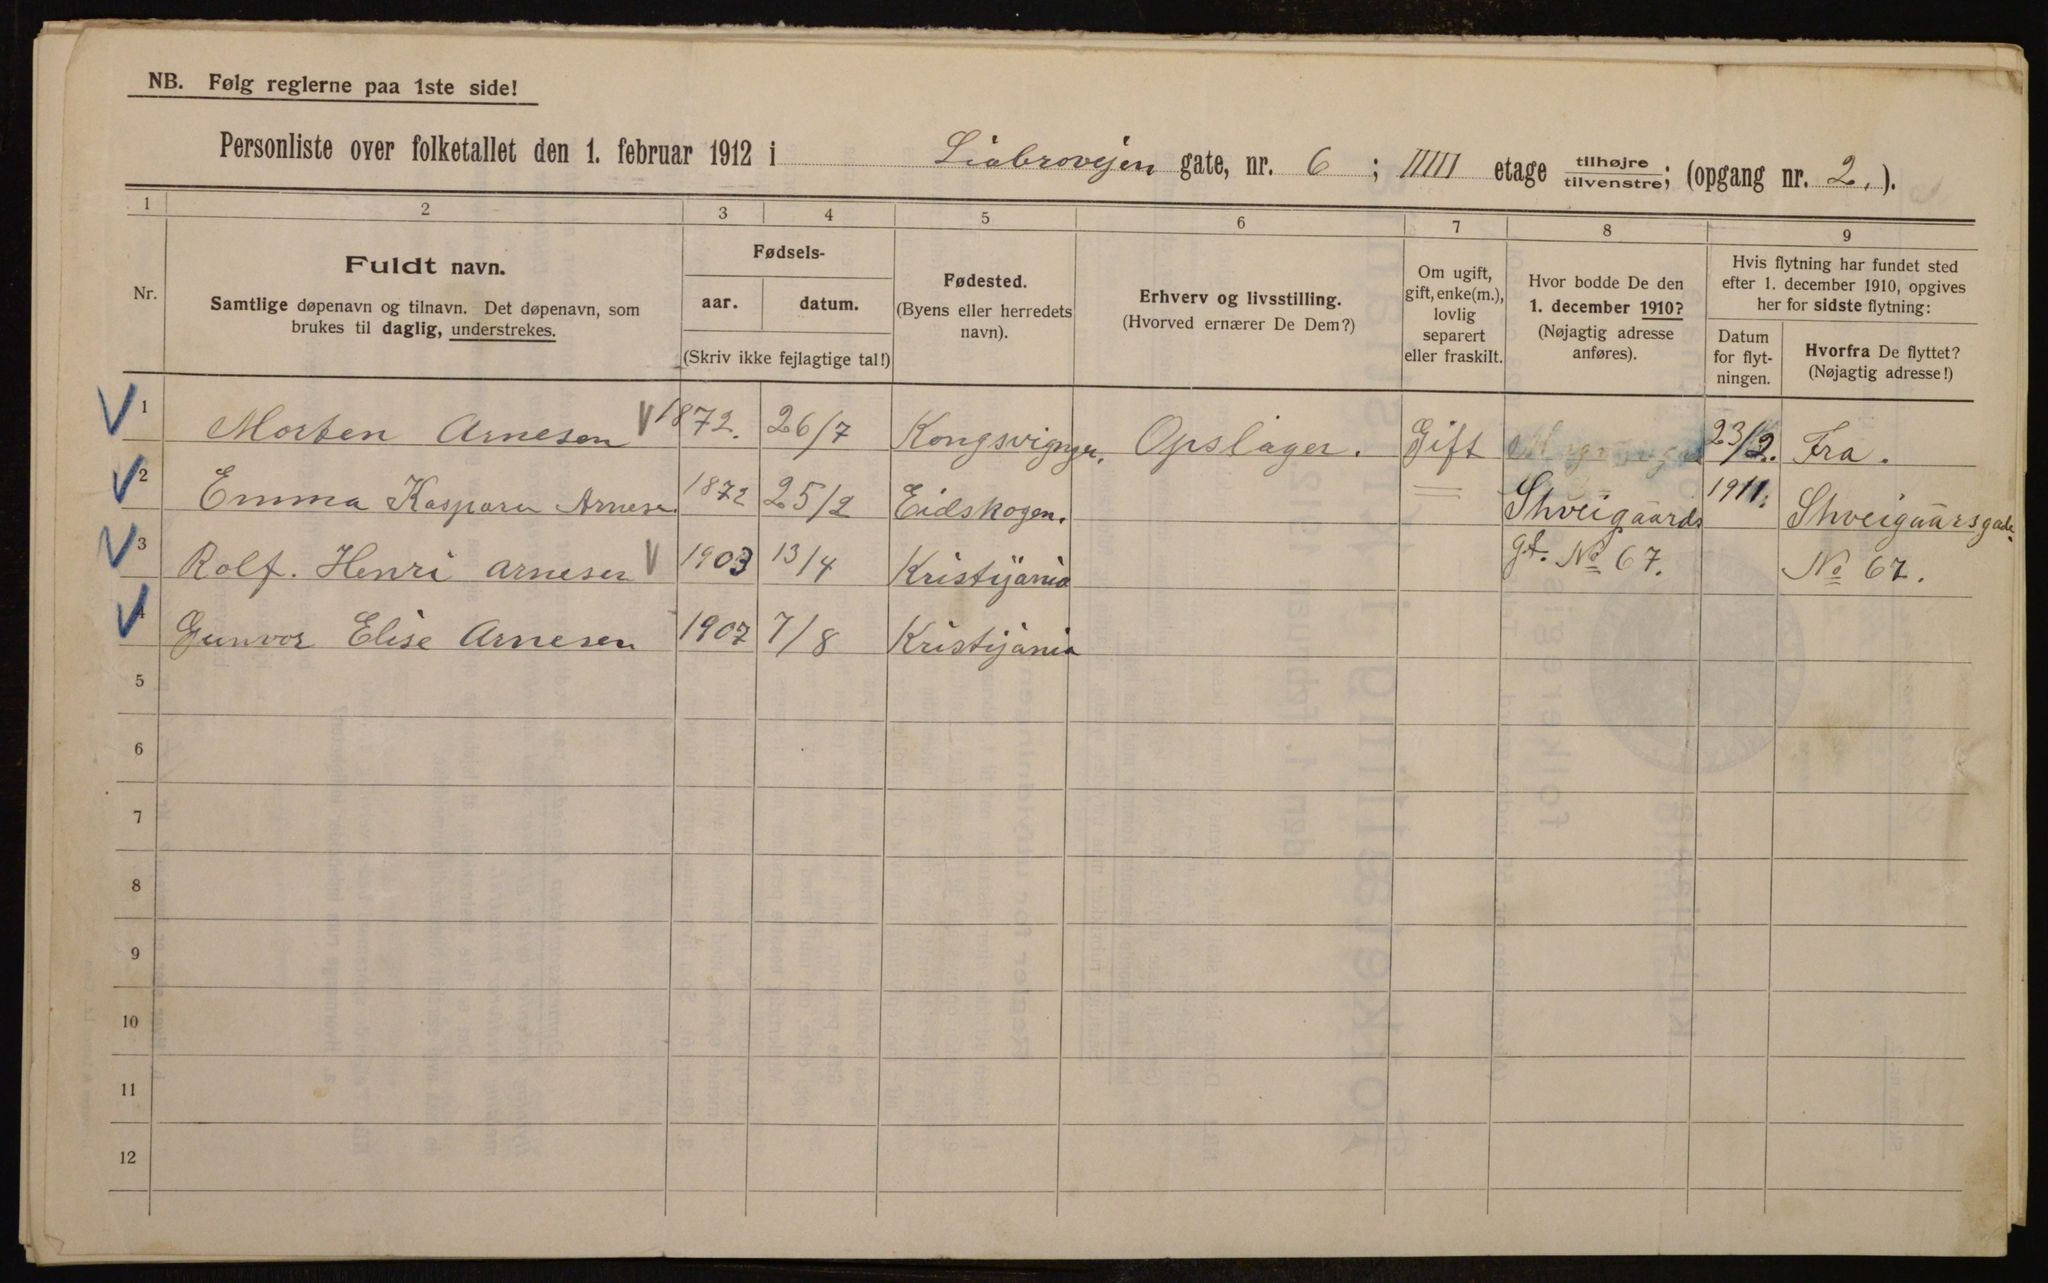 NB. Følg reglerne paa 1ste side!
Personliste over folketallet den 1. februar 1912 i Liabrovejen gate, nr. 6 ; IIIII etage tilhøjre/tilvenstre; (opgang nr. 2.).
1 2 3 4 5 6 7 8 9
Nr.
Fuldt navn.
Samtlige døpenavn og tilnavn. Det døpenavn, som
brukes til daglig, understrekes.
Fødsels-
aar. datum.
(Skriv ikke fejlagtige tal!)
Fødested.
(Byens eller herredets
navn).
Erhverv og livsstilling.
(Hvorved ernærer De Dem?)
Om ugift,
gift, enke(m.),
lovlig
separert
eller fraskilt.
Hvor bodde De den
1. december 1910?
(Nøjagtig adresse
anføres).
Hvis flytning har fundet sted
efter 1. december 1910, opgives
her for sidste flytning:
Datum
for flyt-
ningen.
Hvorfra De flyttet?
(Nøjagtig adresse!)
1 Morten Arnesen 1872. 26/7 Kongsvignger. Opslager. Gift 23/2. Fra.
2 Emma Kaspara Arnesen 1872 25/2 Eidskogen. = Shveigaards 1911. Shveigaarsgade.
3 Rolf. Henri Arnesen 1903 13/4 Kristijania gt. No 67. No 67.
4 Gunvor Elise Arnesen 1907 7/8 Kristijania
5
6
7
8
9
10
11
12